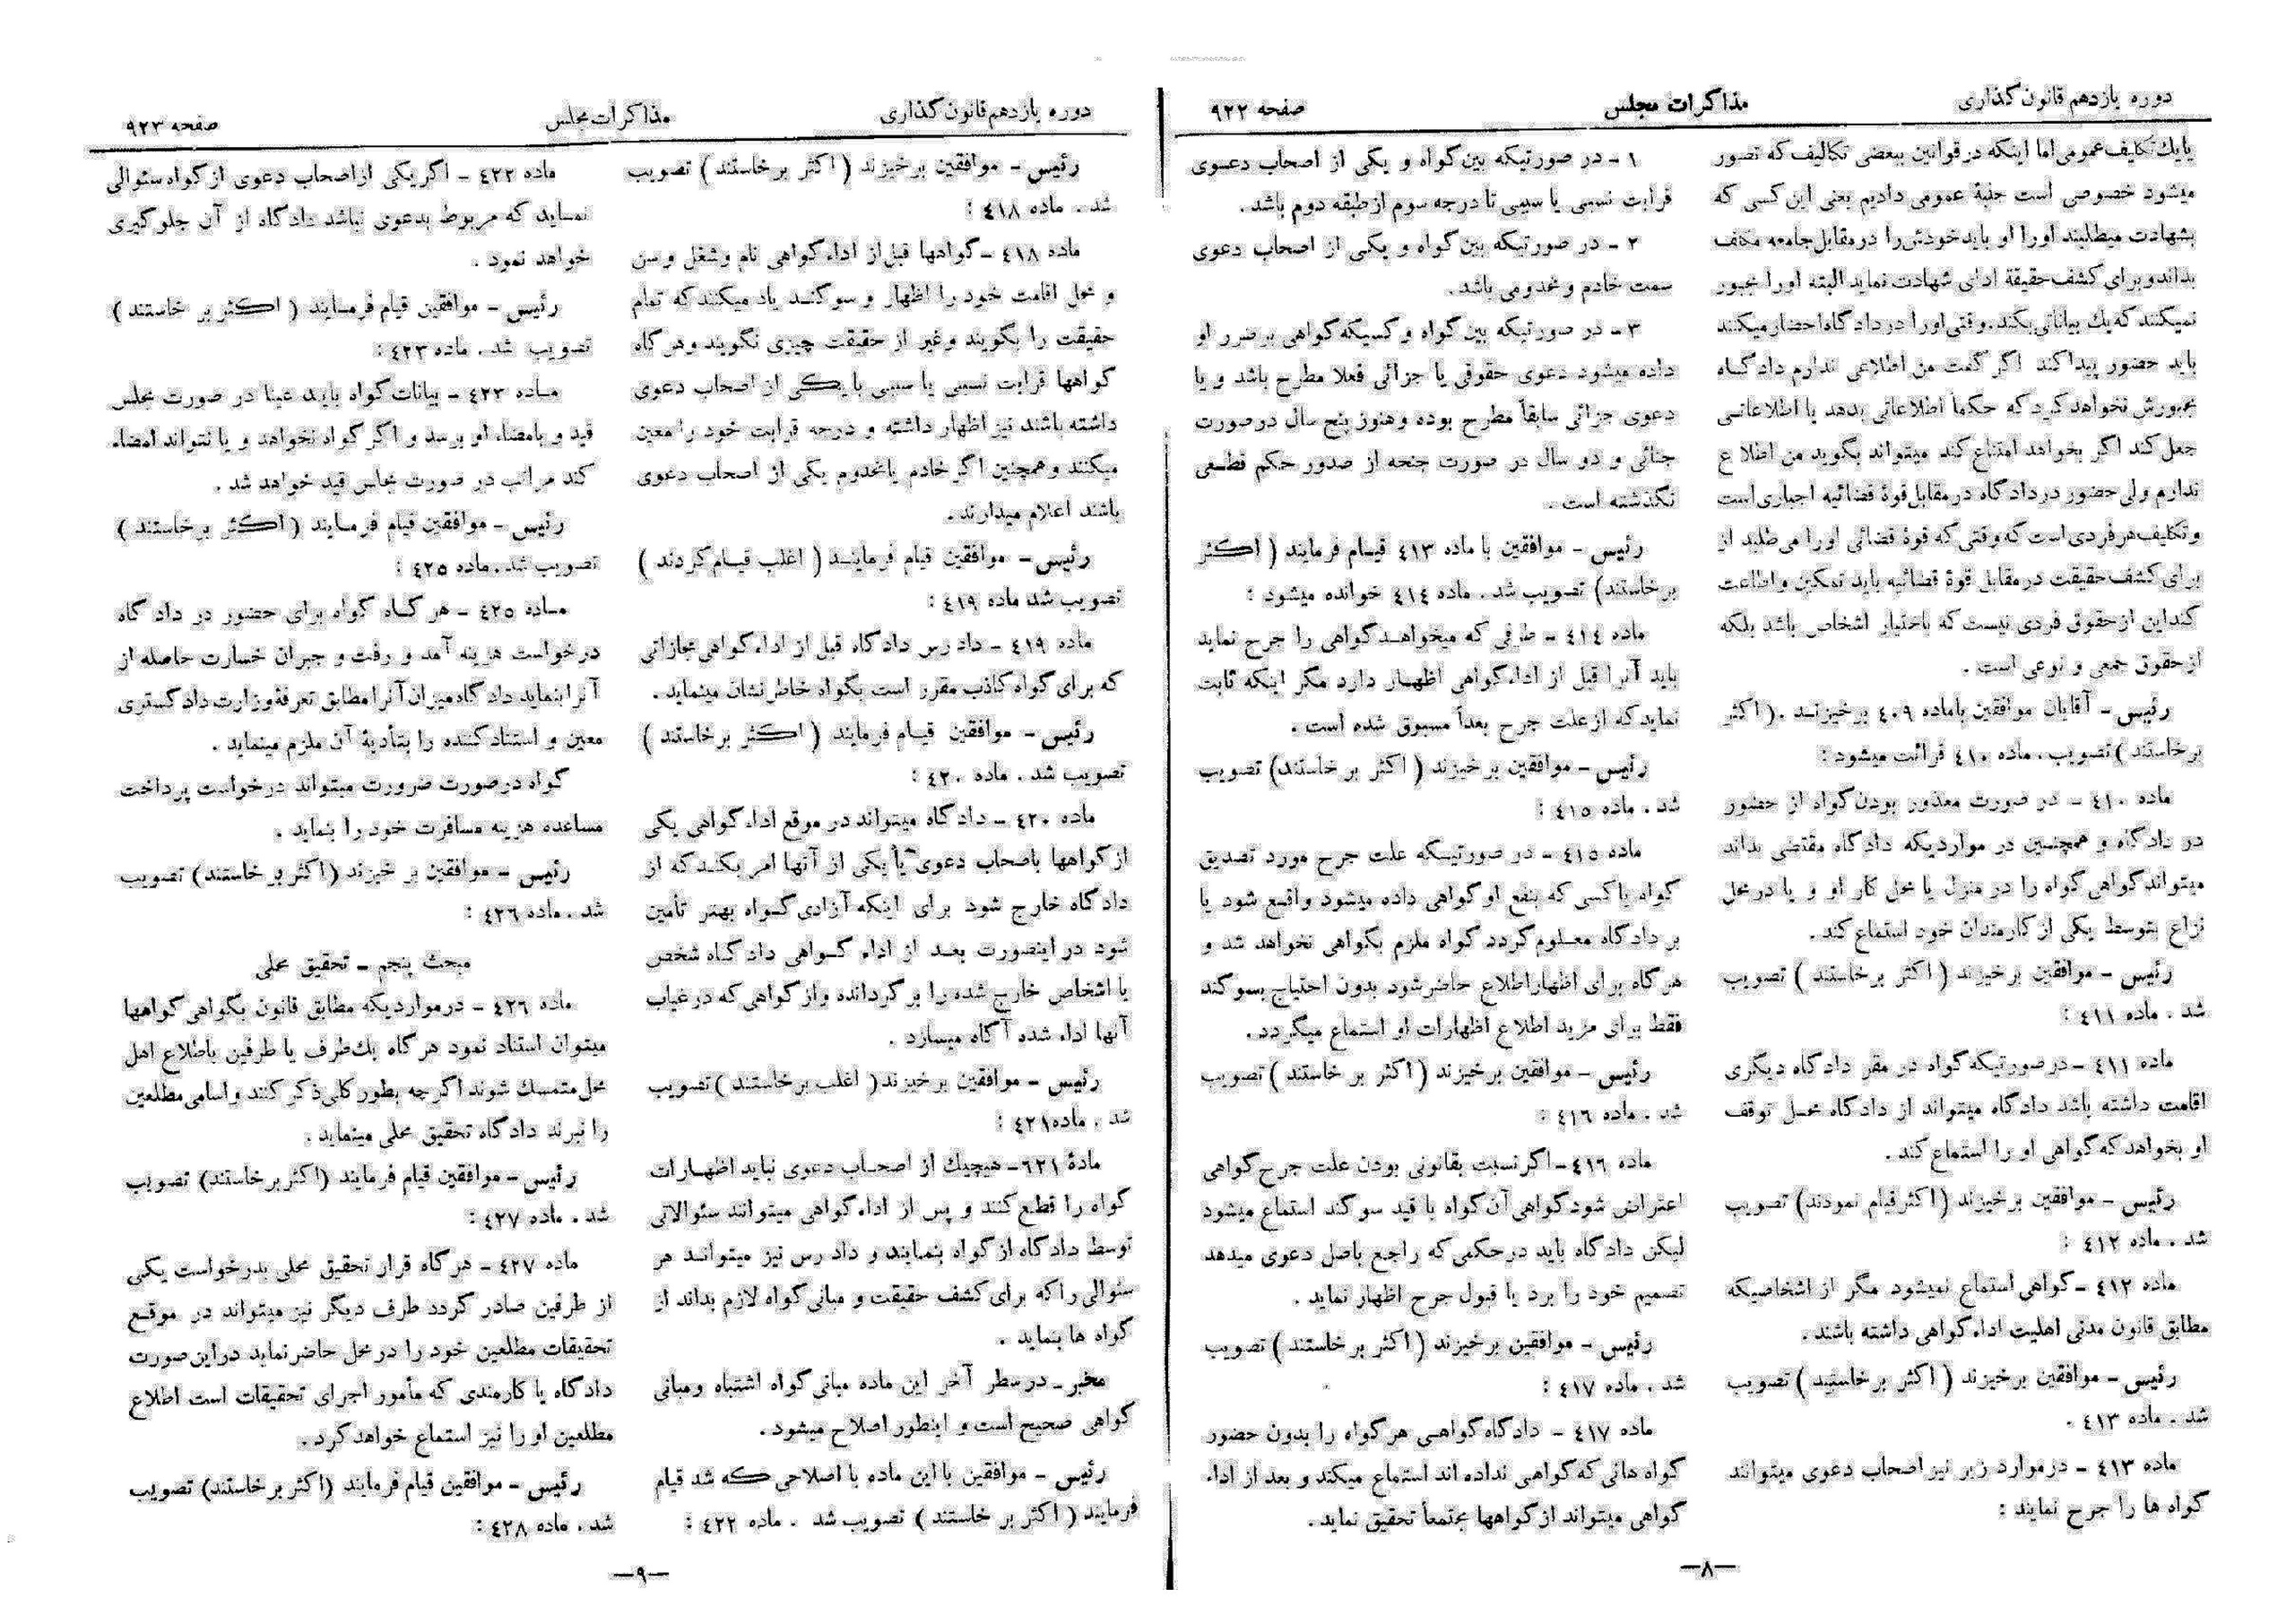 دوره یازدهم قانون گذاری
مذاکرات مجلس
صفحه ۹۲۲
یا یك تکلیف عمومی اما اینکه در قوانین ببعضی تکالیف که تصور
میشود خصوصی است جنبهٔ عمومی دادیم یعنی این کسی که
بشهادت میطلبند او را او باید خودش را در مقابل جامعه مکلف
بداند و برای کشف حقیقة ادای شهادت نماید البته او را مجبور
نمیکنند که یك بیاناتی بکند، وقتی او را در دادگاه احضار میکنند
باید حضور پیدا کند اگر گفت من اطلاعی ندارم دادگاه
مجبورش نخواهد کرد که حکماً اطلاعاتی بدهد یا اطلاعاتی
جعل کند اگر بخواهد امتناع کند میتواند بگوید من اطلاع
ندارم ولی حضور در دادگاه در مقابل قوهٔ قضائیه اجباری است
و تکلیف هر فردی است که وقتی که قوهٔ قضائی او را می طلبد از
برای کشف حقیقت در مقابل قوهٔ قضائیه باید تمکین و اطاعت
کند این از حقوق فردی نیست که باختیار اشخاص باشد بلکه
از حقوق جمعی و نوعی است .
رئیس - آقایان موافقین باماده ٤٠٩ برخیزند . (اکثر
برخاستند) تصویب . ماده ٤١٠ قرائت میشود :
ماده ٤١٠ - در صورت معذور بودن گواه از حضور
در دادگاه و همچنین در مواردیکه دادگاه مقتضی بداند
میتواند گواهی گواه را در منزل یا محل کار او و یا در محل
نزاع بتوسط یکی از کارمندان خود استماع کند .
رئیس - موافقین برخیزند ( اکثر برخاستند ) تصویب
شد . ماده ٤١١ :
ماده ٤١١ - در صورتیکه گواه در مقر دادگاه دیگری
اقامت داشته باشد دادگاه میتواند از دادگاه محل توقف
او بخواهد که گواهی او را استماع کند .
رئیس - موافقین برخیزند (اکثر قیام نمودند) تصویب
شد . ماده ٤١٢ :
ماده ٤١٢ - گواهی استماع نمیشود مگر از اشخاصیکه
مطابق قانون مدنی اهلیت اداء گواهی داشته باشند .
رئیس - موافقین برخیزند ( اکثر برخاستند ) تصویب
شد . ماده ٤١٣ .
ماده ٤١٣ - در موارد زیر نیز اصحاب دعوی میتوانند
گواه ها را جرح نمایند :
۱ - در صورتیکه بین گواه و یکی از اصحاب دعوی
قرابت نسبی یا سببی تا درجه سوم از طبقه دوم باشد .
۲ - در صورتیکه بین گواه و یکی از اصحاب دعوی
سمت خادم و مخدومی باشد .
۳ - در صورتیکه بین گواه و کسیکه گواهی برضرر او
داده میشود دعوی حقوقی یا جزائی فعلا مطرح باشد و یا
دعوی جزائی سابقاً مطرح بوده و هنوز پنج سال در صورت
جنائی و دو سال در صورت جنحه از صدور حکم قطعی
نگذشته است .
رئیس - موافقین با ماده ٤١٣ قیام فرمایند ( اکثر
برخاستند) تصویب شد . ماده ٤١٤ خوانده میشود :
ماده ٤١٤ - طرفی که میخواهد گواهی را جرح نماید
باید آنرا قبل از اداء گواهی اظهار دارد مگر اینکه ثابت
نماید که از علت جرح بعداً مسبوق شده است .
رئیس - موافقین برخیزند ( اکثر برخاستند) تصویب
شد . ماده ٤١٥ :
ماده ٤١٥ - در صورتیکه علت جرح مورد تصدیق
گواه یا کسی که بنفع او گواهی داده میشود واقع شود یا
بر دادگاه معلوم گردد گواه ملزم بگواهی نخواهد شد و
هر گاه برای اظهار اطلاع حاضر شود بدون احتیاج بسوگند
فقط برای مزید اطلاع اظهارات او استماع میگردد .
رئیس - موافقین برخیزند ( اکثر بر خاستند ) تصویب
شد . ماده ٤١٦ :
ماده ٤١٦ - اگر نسبت بقانونی بودن علت جرح گواهی
اعتراض شود گواهی آن گواه با قید سوگند استماع میشود
لیکن دادگاه باید در حکمی که راجع باصل دعوی میدهد
تصمیم خود را برد یا قبول جرح اظهار نماید .
رئیس - موافقین برخیزند ( اکثر بر خاستند ) تصویب
شد . ماده ٤١٧ :
ماده ٤١٧ - دادگاه گواهی هر گواه را بدون حضور
گواه هائی که گواهی نداده اند استماع میکند و بعد از اداء
گواهی میتواند از گواهها مجتمعاً تحقیق نماید .
—۸—
دوره یازدهم قانون گذاری
مذاکرات مجلس
صفحه ۹۲۳
رئیس - موافقین برخیزند ( اکثر برخاستند ) تصویب
شد . ماده ٤١٨ :
ماده ٤١٨ - گواهها قبل از اداء گواهی نام و شغل و سن
و محل اقامت خود را اظهار و سوگند یاد میکنند که تمام
حقیقت را بگویند و غیر از حقیقت چیزی نگویند و هر گاه
گواهها قرابت نسبی یا سببی با یکی از اصحاب دعوی
داشته باشند نیز اظهار داشته و درجه قرابت خود را معین
میکنند و همچنین اگر خادم یا مخدوم یکی از اصحاب دعوی
باشند اعلام میدارند .
رئیس - موافقین قیام فرمایند ( اغلب قیام کردند )
تصویب شد ماده ٤١٩ :
ماده ٤١٩ - داد رس دادگاه قبل از اداء گواهی مجازاتی
که برای گواه کاذب مقرر است بگواه خاطر نشان مینماید .
رئیس - موافقین قیام فرمایند ( اکثر برخاستند )
تصویب شد . ماده ٤٢٠ :
ماده ٤٢٠ - دادگاه میتواند در موقع اداء گواهی یکی
از گواهها باصحاب دعوی یا یکی از آنها امر بکند که از
دادگاه خارج شود برای اینکه آزادی گواه بهتر تأمین
شود در اینصورت بعد از اداء گواهی دادگاه شخص
یا اشخاص خارج شده را برگردانده و از گواهی که در غیاب
آنها اداء شده آگاه میسازد .
رئیس - موافقین برخیزند ( اغلب برخاستند ) تصویب
شد . ماده ٤٢١ :
مادهٔ ٦٢١ - هیچیك از اصحاب دعوی نباید اظهارات
گواه را قطع کنند و پس از اداء گواهی میتوانند سئوالاتی
توسط دادگاه از گواه بنمایند و داد رس نیز میتواند هر
سئوالی را که برای کشف حقیقت و مبانی گواه لازم بداند از
گواه ها بنماید .
مخبر - در سطر آخر این ماده مبانی گواه اشتباه و مبانی
گواهی صحیح است و اینطور اصلاح میشود .
رئیس - موافقین با این ماده با اصلاحی که شد قیام
فرمایند ( اکثر بر خاستند ) تصویب شد . ماده ٤٢٢ :
ماده ٤٢٢ - اگر یکی از اصحاب دعوی از گواه سئوالی
نماید که مربوط بدعوی نباشد دادگاه از آن جلوگیری
خواهد نمود .
رئیس - موافقین قیام فرمایند ( اکثر بر خاستند )
تصویب شد . ماده ٤٢٣ :
ماده ٤٢٣ - بیانات گواه باید عینا در صورت مجلس
قید و بامضاء او برسد و اگر گواه نخواهد و یا نتواند امضاء
کند مراتب در صورت مجلس قید خواهد شد .
رئیس - موافقین قیام فرمایند ( اکثر برخاستند )
تصویب شد . ماده ٤٢٥ :
ماده ٤٢٥ - هر گاه گواه برای حضور در دادگاه
درخواست هزینه آمد و رفت و جبران خسارت حاصله از
آنرا بنماید دادگاه میزان آنرا مطابق تعرفهٔ وزارت دادگستری
معین و استناد کننده را بتأدیهٔ آن ملزم مینماید .
گواه در صورت ضرورت میتواند درخواست پرداخت
مساعده هزینه مسافرت خود را بنماید .
رئیس - موافقین بر خیزند (اکثر بر خاستند) تصویب
شد . ماده ٤٢٦ :
مبحث پنجم - تحقیق محلی
ماده ٤٢٦ - در مواردیکه مطابق قانون بگواهی گواهها
میتوان استناد نمود هر گاه یك طرف یا طرفین باطلاع اهل
محل متمسك شوند اگر چه بطور کلی ذکر کنند و اسامی مطلعین
را نبرند دادگاه تحقیق محلی مینماید .
رئیس - موافقین قیام فرمایند (اکثر برخاستند) تصویب
شد . ماده ٤٢٧ :
ماده ٤٢٧ - هر گاه قرار تحقیق محلی بدرخواست یکی
از طرفین صادر گردد طرف دیگر نیز میتواند در موقع
تحقیقات مطلعین خود را در محل حاضر نماید در این صورت
دادگاه یا کارمندی که مأمور اجرای تحقیقات است اطلاع
مطلعین او را نیز استماع خواهد کرد .
رئیس - موافقین قیام فرمایند (اکثر برخاستند) تصویب
شد . ماده ٤٢٨ :
—۹—